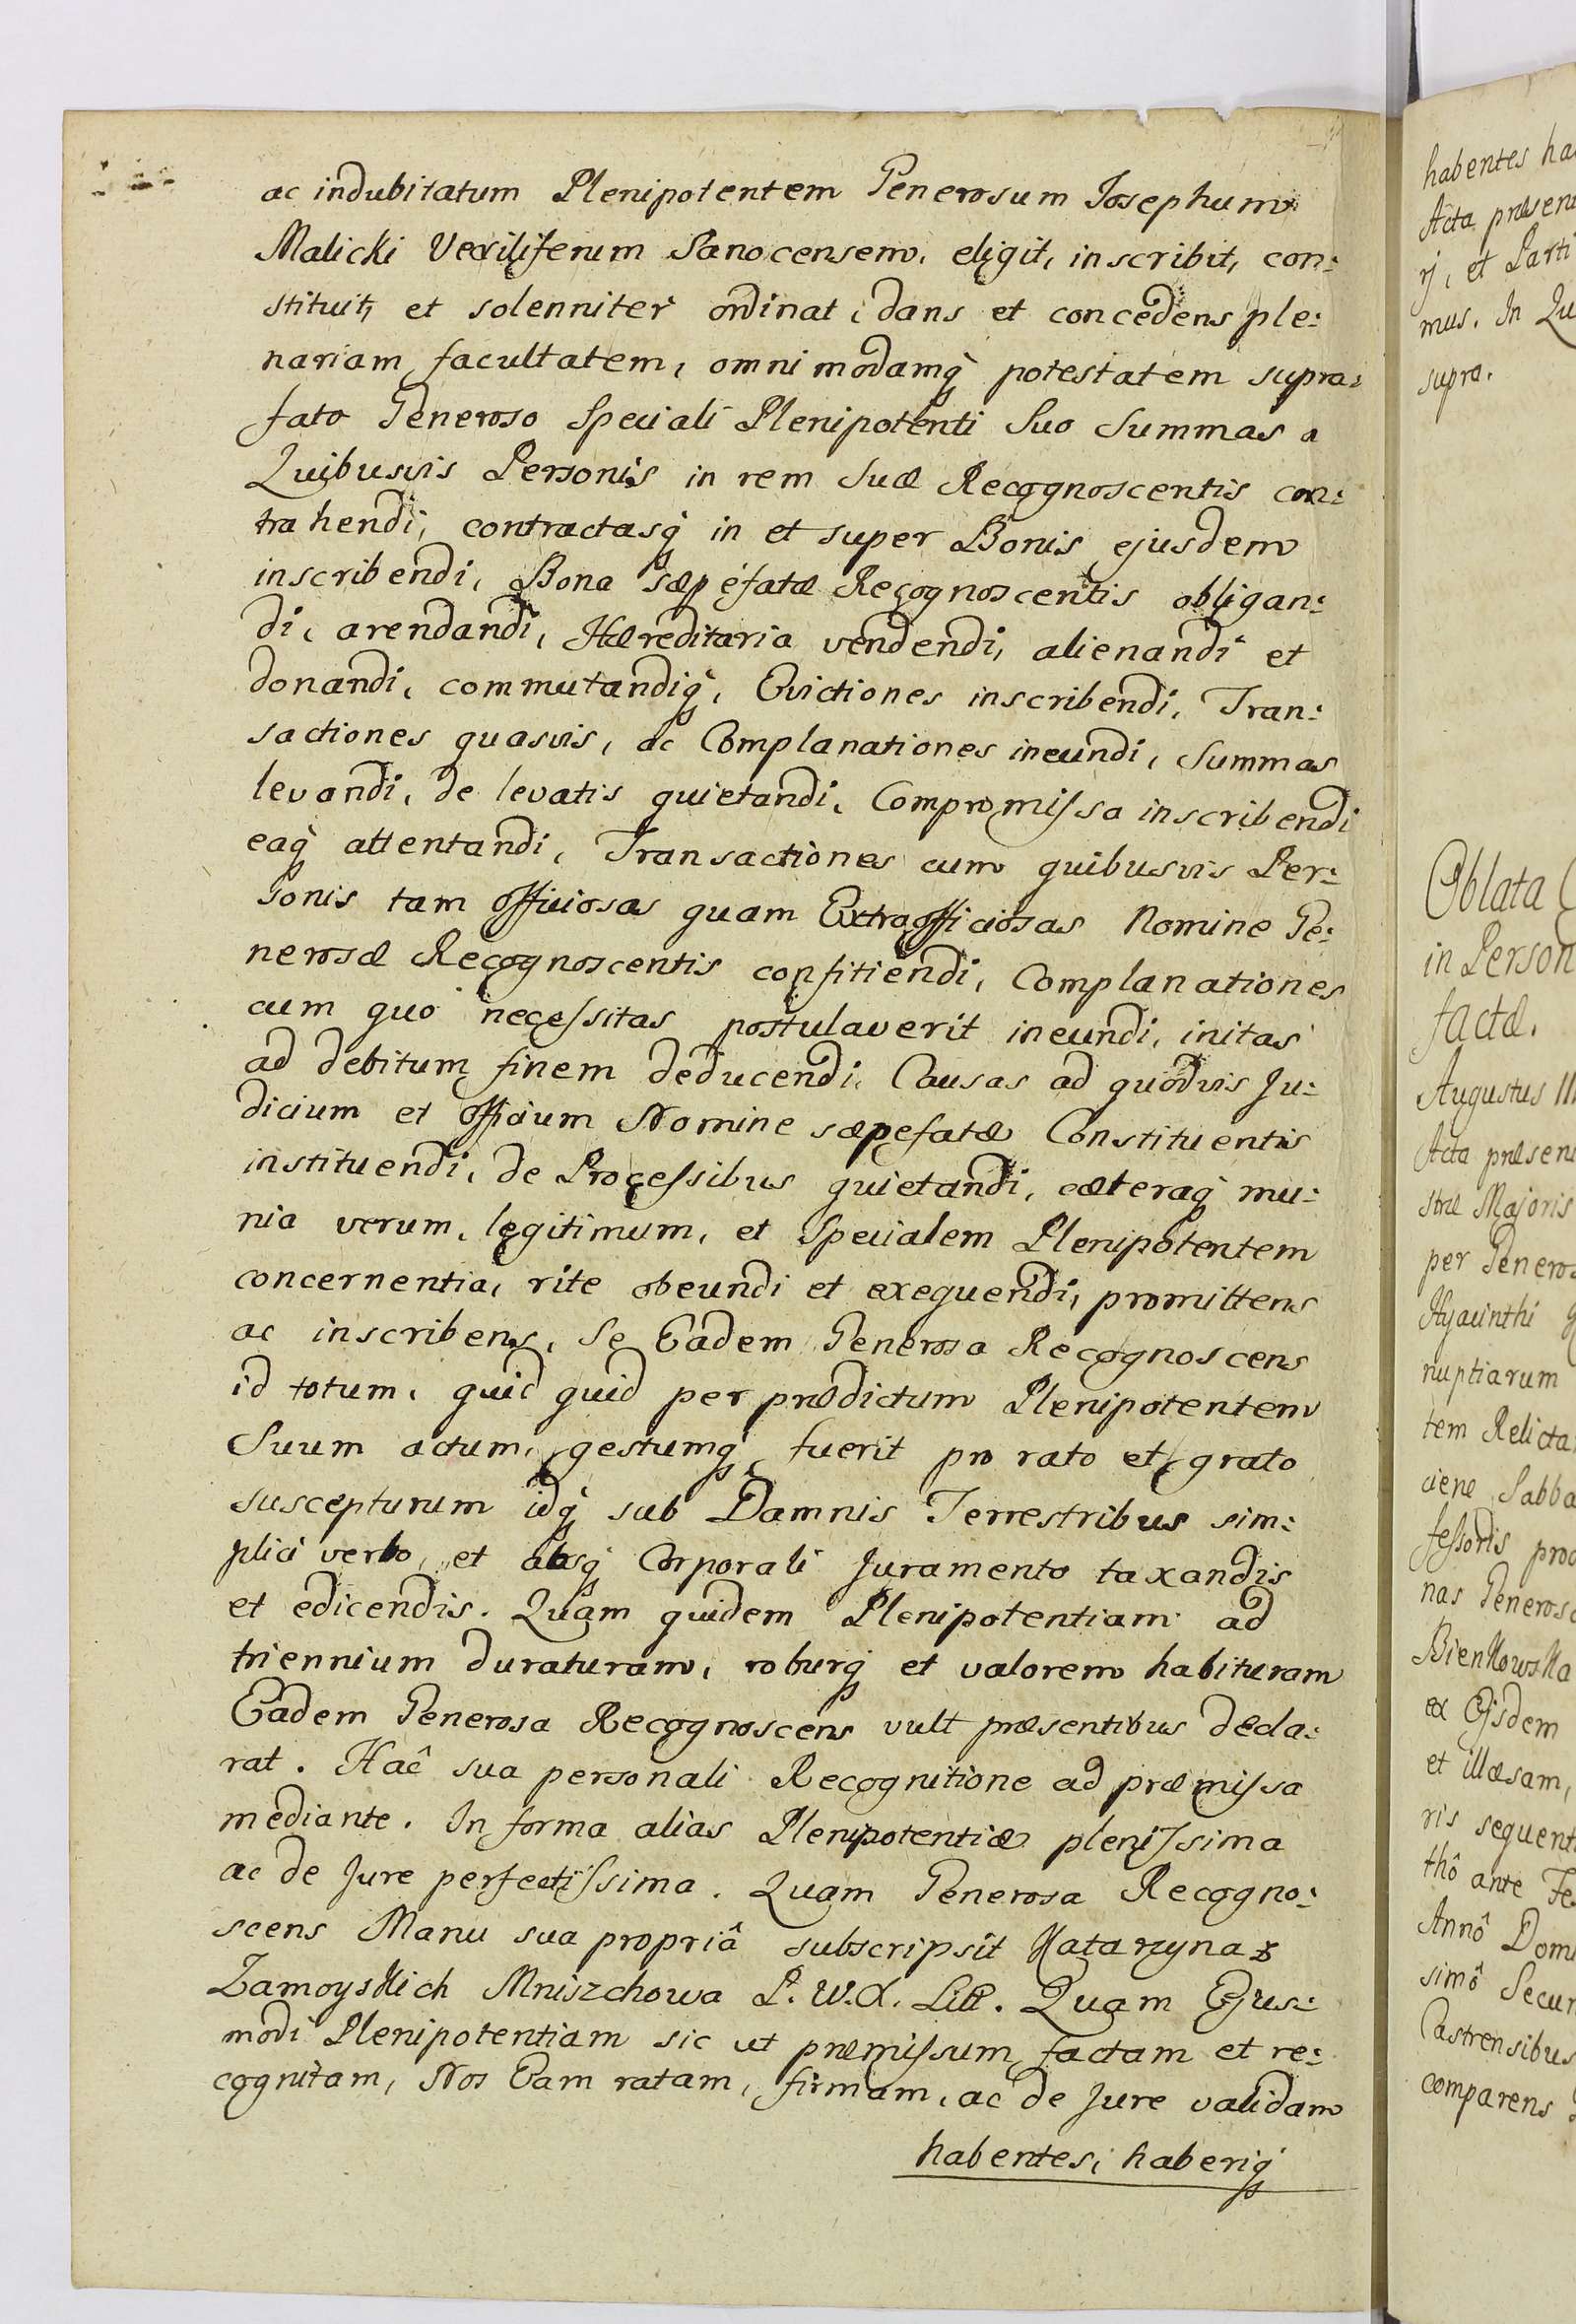 ac indubitatum Plenipotentem Generosum Josephum
Malicki Vexiliferum Sanocensem, eligit, inscribit, con:
stituit, et solenniter ordinat, dans et concedens ple:
nariam facultatem, omnimodamq́ potestatem supra:
fato Generoso Speciali Plenipotenti Suo Summas a
Quibusvis Personis in rem Suæ Recognoscentis con:
trahendi, contractasq́ in et super Bonis ejusdem
inscribendi, Bona sæpefatæ Recognoscentis obligan:
di, arendandi, Hæreditaria vendendi, alienandi et
donandi, commutandiq́, Evictiones inscribendi, Tran:
sactiones quasvis, ac Complanationes ineundi, Summas
levandi, de levatis quietandi, Compromissa inscribendi
eaq́ attentandi, Transactiones cum quibusvis Per:
sonis tam officiosas quam Extraofficiosas Nomine Ge:
nerosæ Recognoscentis confitiendi, Complanationes
cum quo necessitas postulaverit ineundi, initas
ad debitum finem deducendi, Causas ad quodvis Ju:
dicium et officium Nomine sæpefatæ Constituentis
instituendi, de Processibus quietandi, cæteraq́ mu:
nia verum, legitimum, et Specialem Plenipotentem
concernentia, rite obeundi et exequendi, promittens
ac inscribens, Se Eadem Generosa Recognoscens
id totum, quid quid per prædictum Plenipotentem
Suum actum, gestumq́ fuerit pro rato et grato
suscepturum idq́ sub Damnis Terrestribus sim:
plici verbo, et absq́ Corporali Juramento taxandis
et edicendis. Quam quidem Plenipotentiam ad
triennium duraturam, roburq́ et valorem habituram
Eadem Generosa Recognoscens vult præsentibus decla:
rat. Hac̑ sua personali Recognitione ad præmissa
mediante. In forma alias Plenipotentiæ plenissima
ac de Jure perfectissima. Quam Generosa Recogno:
scens Manu sua propriâ subscripsit Katarzyna z
Zamoyskich Mniszchowa P. W. X. Litt. Quam Ejus:
modi Plenipotentiam sic ut præmissum factam et re:
cognitam, Nos Eam ratam, firmam, ac de Jure validam
habentes, haberiq́
habentes ha
Acta præsen
rj, et Parti
mus. In Qu
supra.
Oblata
in Person
factæ.
Augustus III
Acta præsen
stræ Majoris
per Generos
Hyacinthi
nuptiarum
tem Relicta
ciene Sabba
fessoris pro
nas Generos
Bienkowska
ex Ejsdem
et illæsam,
ris sequent
thô ante Fe
Annô Dom
simô Secun
Castrensibus
comparens